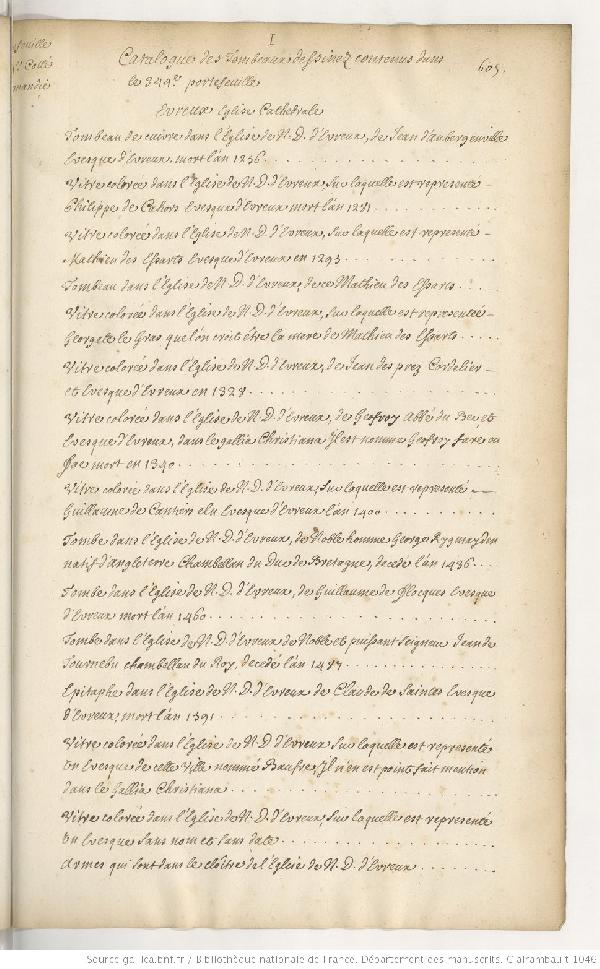 feuille
1
Catalogue des Tombeaux dessinez contenus dans
605.
le 344.e portefeuille
Evreux Eglise Cathedrale
Tombeau de cuivre dans l'Eglise de N. D. d'Evreux, de Jean d'aubergenville
Evesque d'Evreux, mort l'an 1256
Vitre colorée dans l'Eglise de N. D. d'Evreux, sur laquelle est representé
Philippe de Cahors Evesque d'Evreux mort l'an 1281
Vitre colorée dans l'Eglise de N. D. d'Evreux, sur laquelle est representé
Mathieu des Essarts Evesque d'Evreux en 1293
Tombeau dans l'Eglise de N. D. d'Evreux, de ce Mathieu des Essarts
Vitre colorée dans l'Eglise de N. D. d'Evreux, sur laquelle est representée
le Gras que l'on croit être la mere de Mathieu des Essarts
Vitre colorée dans l'Eglise de N. D. d'Evreux, de Jean des prez Cordelier
et Evesque d'Evreux en 1328
Vitre colorée dans l'Eglise de N. D. d'Evreux, de Geofroy Abbé du Bec et
Evesque d'Evreux, dans le gallia Christiana Il est nommé Geofroy fare ou
mort en 1340
Vitre colorée dans l'Eglise de N. D. d'Evreux, sur laquelle est representé
Guillaume de Cantiers elu Evesque d'Evreux l'an 1400
Tombe dans l'Eglise de N. D. d'Evreux, de Noble homme George
natif d'angleterre Chambellan du Duc de Bretagne, decedé l'an 1436
Tombe dans l'Eglise de N. D. d'Evreux, de Guillaume de Flocques Evesque
d'Evreux mort l'an 1460
Tombe dans l'Eglise de N. D. d'Evreux de Noble et puissant Seigneur Jean de
Tournebu chambellan du Roy, decedé l'an
Epitaphe dans l'Eglise de N. D. d'Evreux de Claude de Saintes Evesque
d'Evreux, mort l'an 1591
Vitre colorée dans l'Eglise de N. D. d'Evreux sur laquelle est representé
Un Evesque de celle Ville nommé Il n'en est point fait mention
dans le Gallia Christiana
Vitre colorée dans l'Eglise de N. D. d'Evreux, sur laquelle est representé
Un Evesque sans nom et sans date
Armes qui sont dans le cloître de l'Eglise de N. D. d'Evreux
Source gallica.bnf.fr / Bibliothèque nationale de France. Département des manuscrits. Clairambault 1046